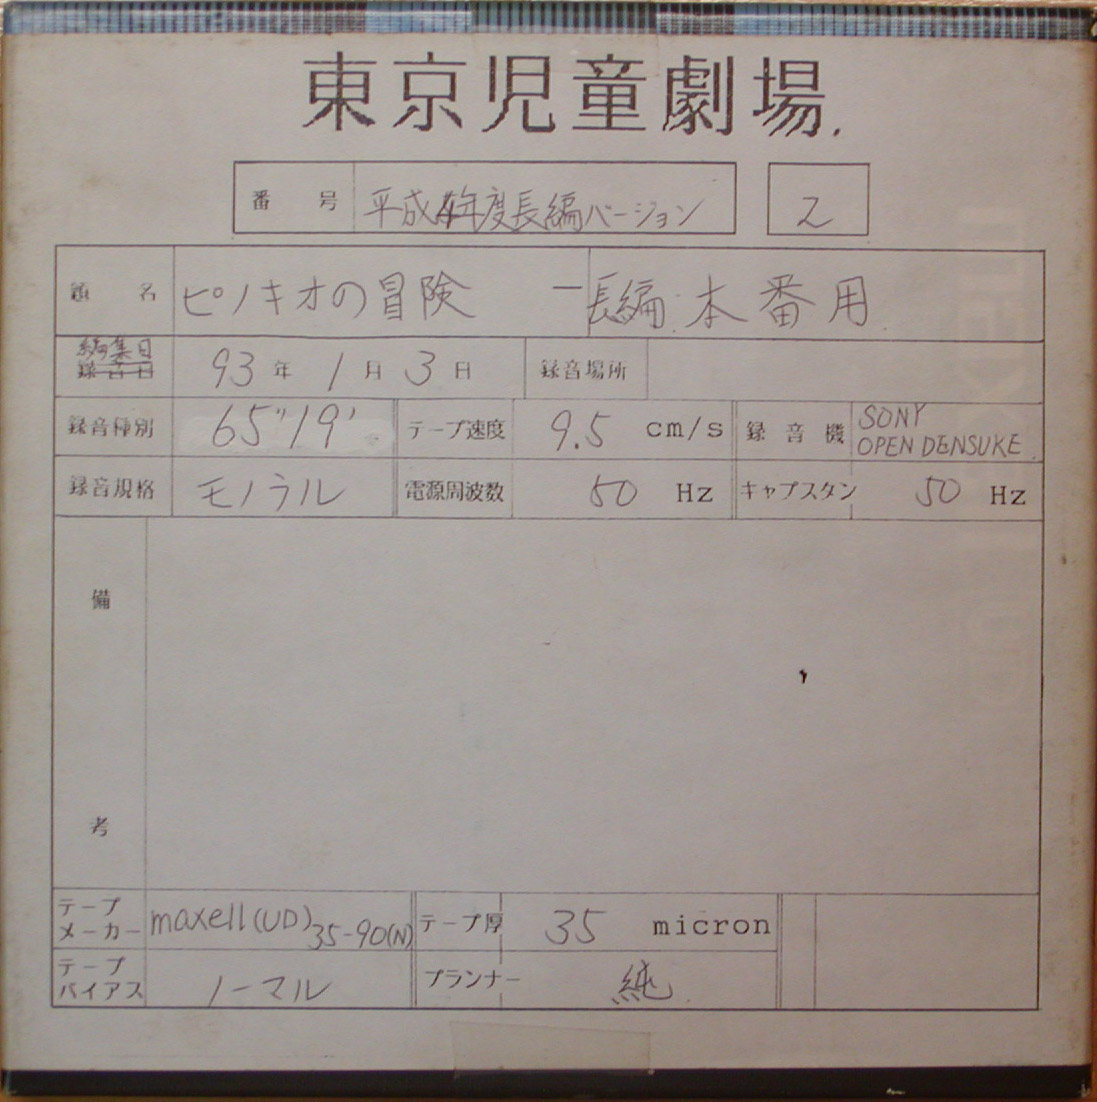 東京児童劇場.
番号 平成4年度長編バージョン 2
題名 ピノキオの冒険 ー長編 本番用
編集日
録音日 93年 1月 3日 録音場所
録音種別 65"19' テープ速度 9.5 cm/s 録音機 SONY OPEN DENSUKE
録音規格 モノラル 電源周波数 50 Hz キャプスタン 50 Hz
備
考
テープメーカー maxell(UD)35-90(N) テープ厚 35 micron
テープバイアス ノーマル プランナー 純